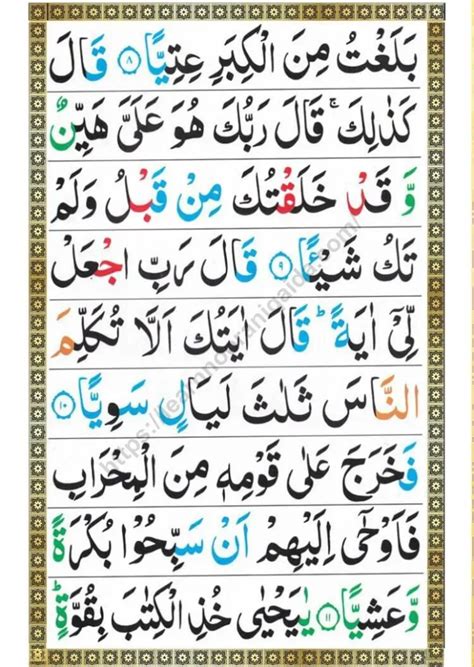 بَلَغْتُ مِنَ الْكِبَرِ عِتِيًّا ۸ قَالَ
كَذٰلِكَ ۚ قَالَ رَبُّكَ هُوَ عَلَيَّ هَيِّنٌ
وَّ قَدْ خَلَقْتُكَ مِنْ قَبْلُ وَلَمْ
تَكُ شَيْـًٔا ۹ قَالَ رَبِّ اجْعَلْ
لِّيْٓ اٰيَةً ؕ قَالَ اٰيَتُكَ اَلَّا تُكَلِّمَ
النَّاسَ ثَلٰثَ لَيَالٍ سَوِيًّا ۱۰
فَخَرَجَ عَلٰى قَوْمِهٖ مِنَ الْمِحْرَابِ
فَاَوْحٰٓى اِلَيْهِمْ اَنْ سَبِّحُوْا بُكْرَةً
وَّعَشِيًّا ۱۱ يٰيَحْيٰى خُذِ الْكِتٰبَ بِقُوَّةٍ ؕ